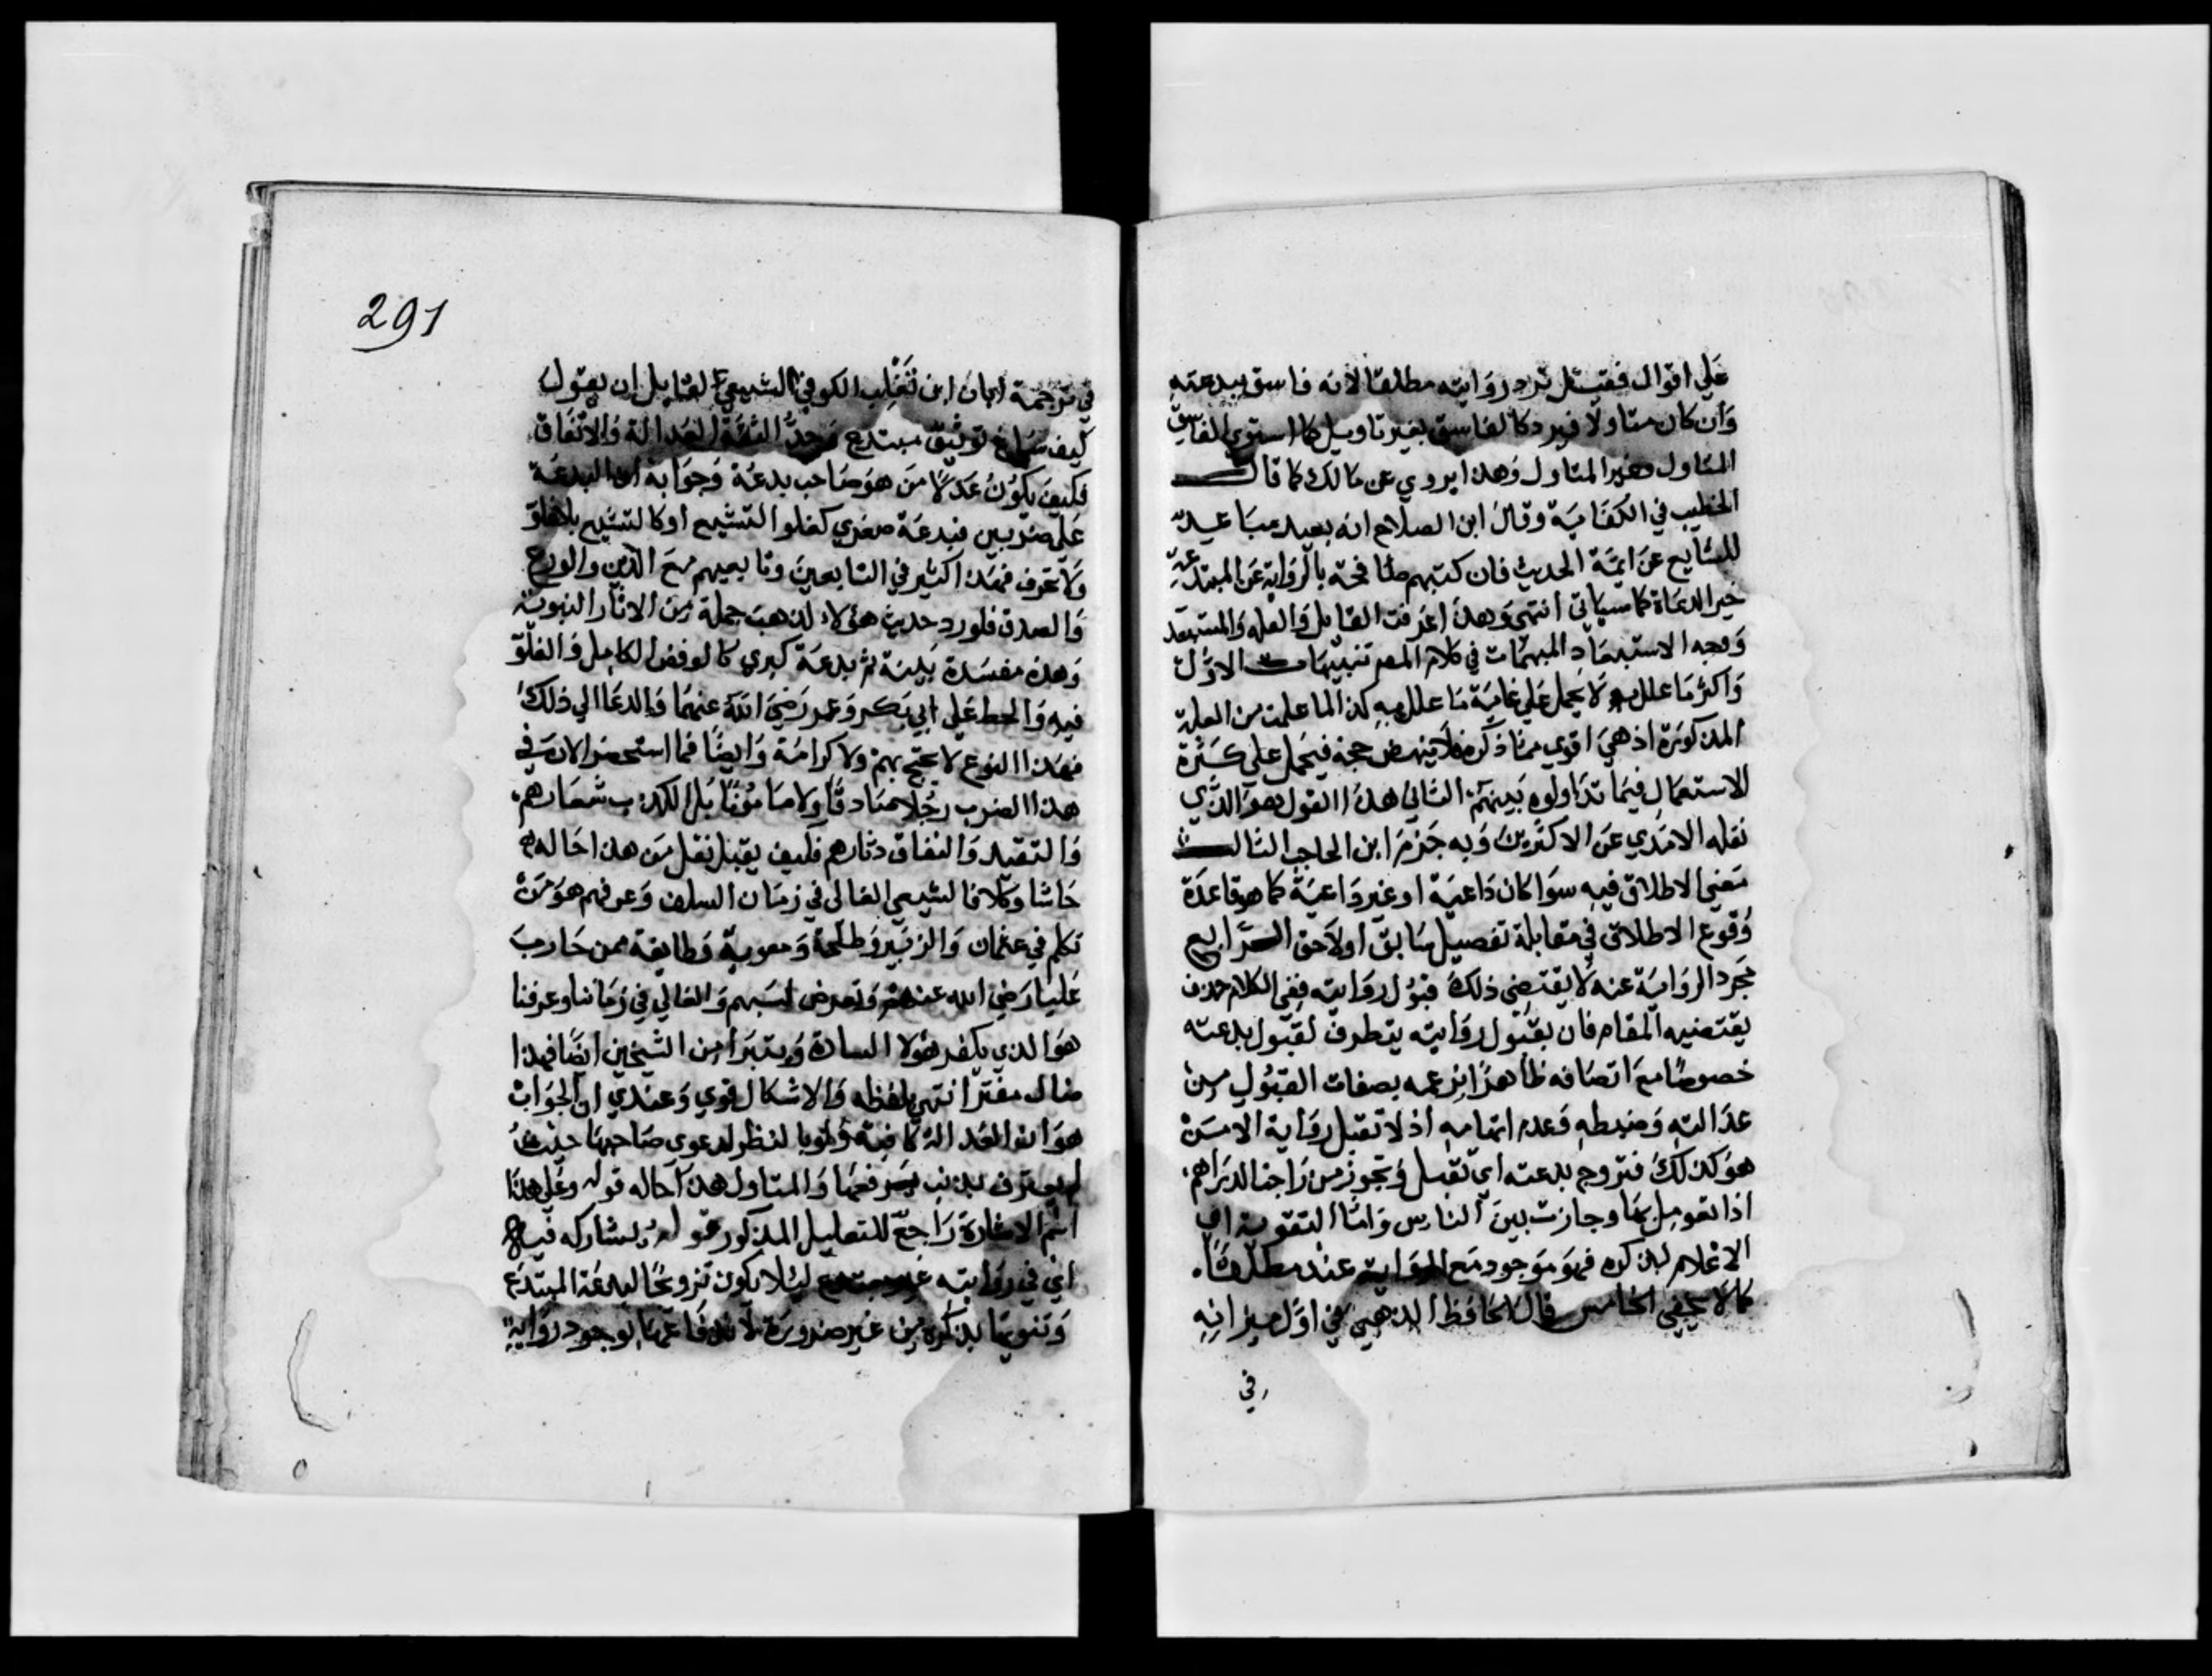 علي اقوال فقيل ترد روايته مطلقا لانه فاسق ببدعته
وان كان متاولا فيرد كالفاسق بغير تاويل كما استوي الفاسق
المتاول وغير المتاول وهذا يروي عن مالك كما قال
الخطيب في الكفاية وقال ابن الصلاح انه بعيد مباعيد
للشايع عن ايمة الحديث فان كتبهم طافحة بالرواية عن المبتدعة
غير الدعاة كما سياتي انتهي وهذا اعرفت القايل والعله والمستبعد
ووجه الاستبعاد المبهمات في كلام المص تنبيهات الاول
واكثر ما علل به لا يحمل علي غاية ما علل به كذا لما علمت من العلة
المذكورة اذ هي اقوي مما ذكره فلا ينهض حجة فيحمل علي كثرة
الاستعمال فيما تداولوه بينهم الثاني هذا القول هو الذي
نقله الامدي عن الاكثرين وبه جزم ابن الحاجب الثالث
معني الاطلاق فيه سوا كان داعية او غير داعية كما هو قاعدة
وقوع الاطلاق في مقابلة تفصيل سابق او لاحق الرابع
مجرد الرواية عنه لا يقتضي ذلك قبول روايته ففي الكلام حذف
يقتضيه المقام فان بقبول روايته يتطرف لقبول بدعته
خصوصا مع اتصافه ظاهرا بزعمه بصفات القبول من
عدالته وضبطه وعدم اتهامه اذ لا تقبل رواية الا من
هو كذلك فتروج بدعته اي تقبل وتجوز من راجت الدراهم
اذا تعومل بها وجازت بين الناس واما التقوية اي
الاعلام بذكره فهو موجود مع الرواية عنه مطلقا
كما لا يخفي الخامس قال الحافظ الذهبي في اول ميزانه
في
291
في ترجمة ابان ابن تغلب الكوفي الشيعي لقايل ان يقول
كيف ساغ توثيق مبتدع وحد الثقة العدالة والاتقان
فكيف يكون عدلا من هو صاحب بدعة وجوابه ان البدعة
علي ضربين فبدعة صغري كغلو التشيع او كالتشيع بلا غلو
ولا تحرف فهذا كثير في التابعين وتابعيهم مع الدين والورع
والصدق فلو رد حديث هؤلاء لذهب جملة من الاثار النبوية
وهذه مفسدة بينة ثم بدعة كبري كالرفض الكامل والغلو
فيه والحط علي ابي بكر وعمر رضي الله عنهما والدعا الي ذلك
فهذا النوع لا يحتج بهم ولا كرامة وايضا فما استحضر الان في
هذا الضرب رجلا صادقا ولا مامونا بل الكذب شعارهم
والتقية والنفاق دثارهم فكيف يقبل نقل من هذا حاله
حاشا وكلا فالشيعي الغالي في زمان السلف وعرفهم هو من
تكلم في عثمان والزبير وطلحة ومعوية وطايفة ممن حارب
عليا رضي الله عنهم وتعرض لسبهم والغالي في زماننا وعرفنا
هو الذي يكفر هؤلا السادة ويتبرا من الشيخين ايضا فهذا
ضال مفتر انتهي بلفظه والاشكال قوي وعندي ان الجواب
هو ان العدالة كافية ولو بالنظر لدعوي صاحبها حيث
لم يعترف بذنب يرفعها والمتاول هذا حاله قوله وعلي هذا
اسم الاشارة راجع للتعليل المذكور قوله يشاركه فيه
اي في روايته غير مبتدع ليلا يكون ترويجا لبدعة المبتدع
وتنويها بذكره من غير ضرورة لاندفاعها بوجود رواية